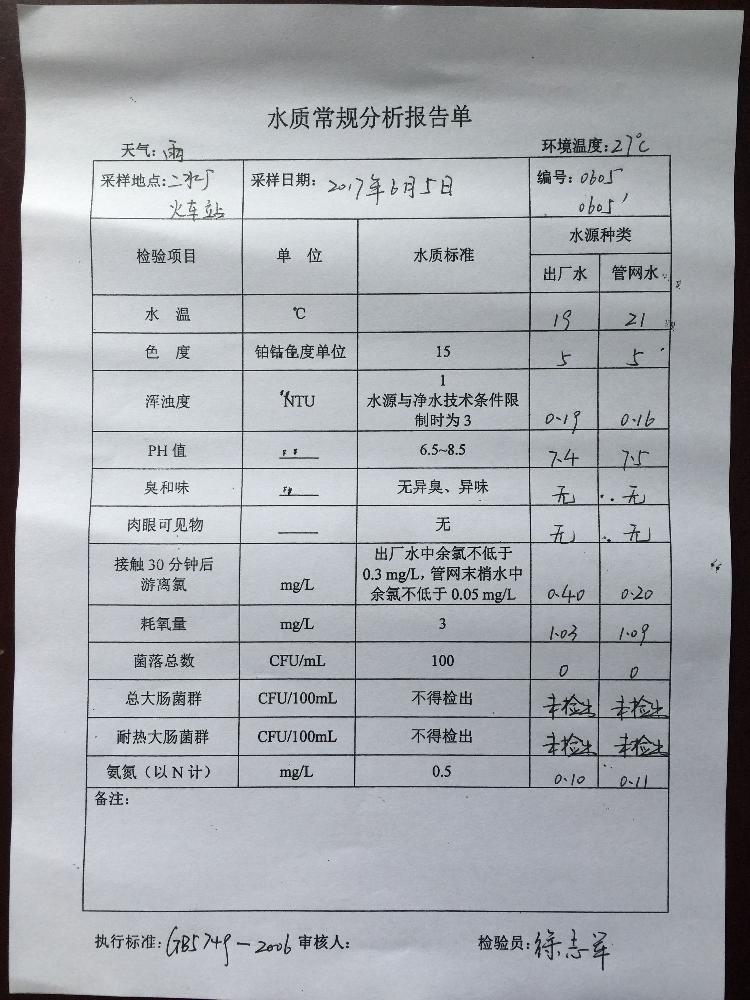 水质常规分析报告单
天气:雨 环境温度:27℃
采样地点:二水厂 采样日期: 2017年6月5日 编号: 0605
火车站 0605'
检验项目 单 位 水质标准 水源种类
出厂水 管网水
水 温 ℃ 19 21
色 度 铂钴色度单位 15 5 5
浑浊度 NTU 1
水源与净水技术条件限
制时为 3 0.19 0.16
PH 值 —— 6.5~8.5 7.4 7.5
臭和味 —— 无异臭、异味 无 无
肉眼可见物 —— 无 无 无
接触 30 分钟后 出厂水中余氯不低于
游离氯 mg/L 0.3 mg/L, 管网末梢水中
余氯不低于 0.05 mg/L 0.40 0.20
耗氧量 mg/L 3 1.03 1.09
菌落总数 CFU/mL 100 0 0
总大肠菌群 CFU/100mL 不得检出 未检出 未检出
耐热大肠菌群 CFU/100mL 不得检出 未检出 未检出
氨氮（以 N 计） mg/L 0.5 0.10 0.11
备注:
执行标准: GB5749-2006 审核人: 检验员: 徐志军